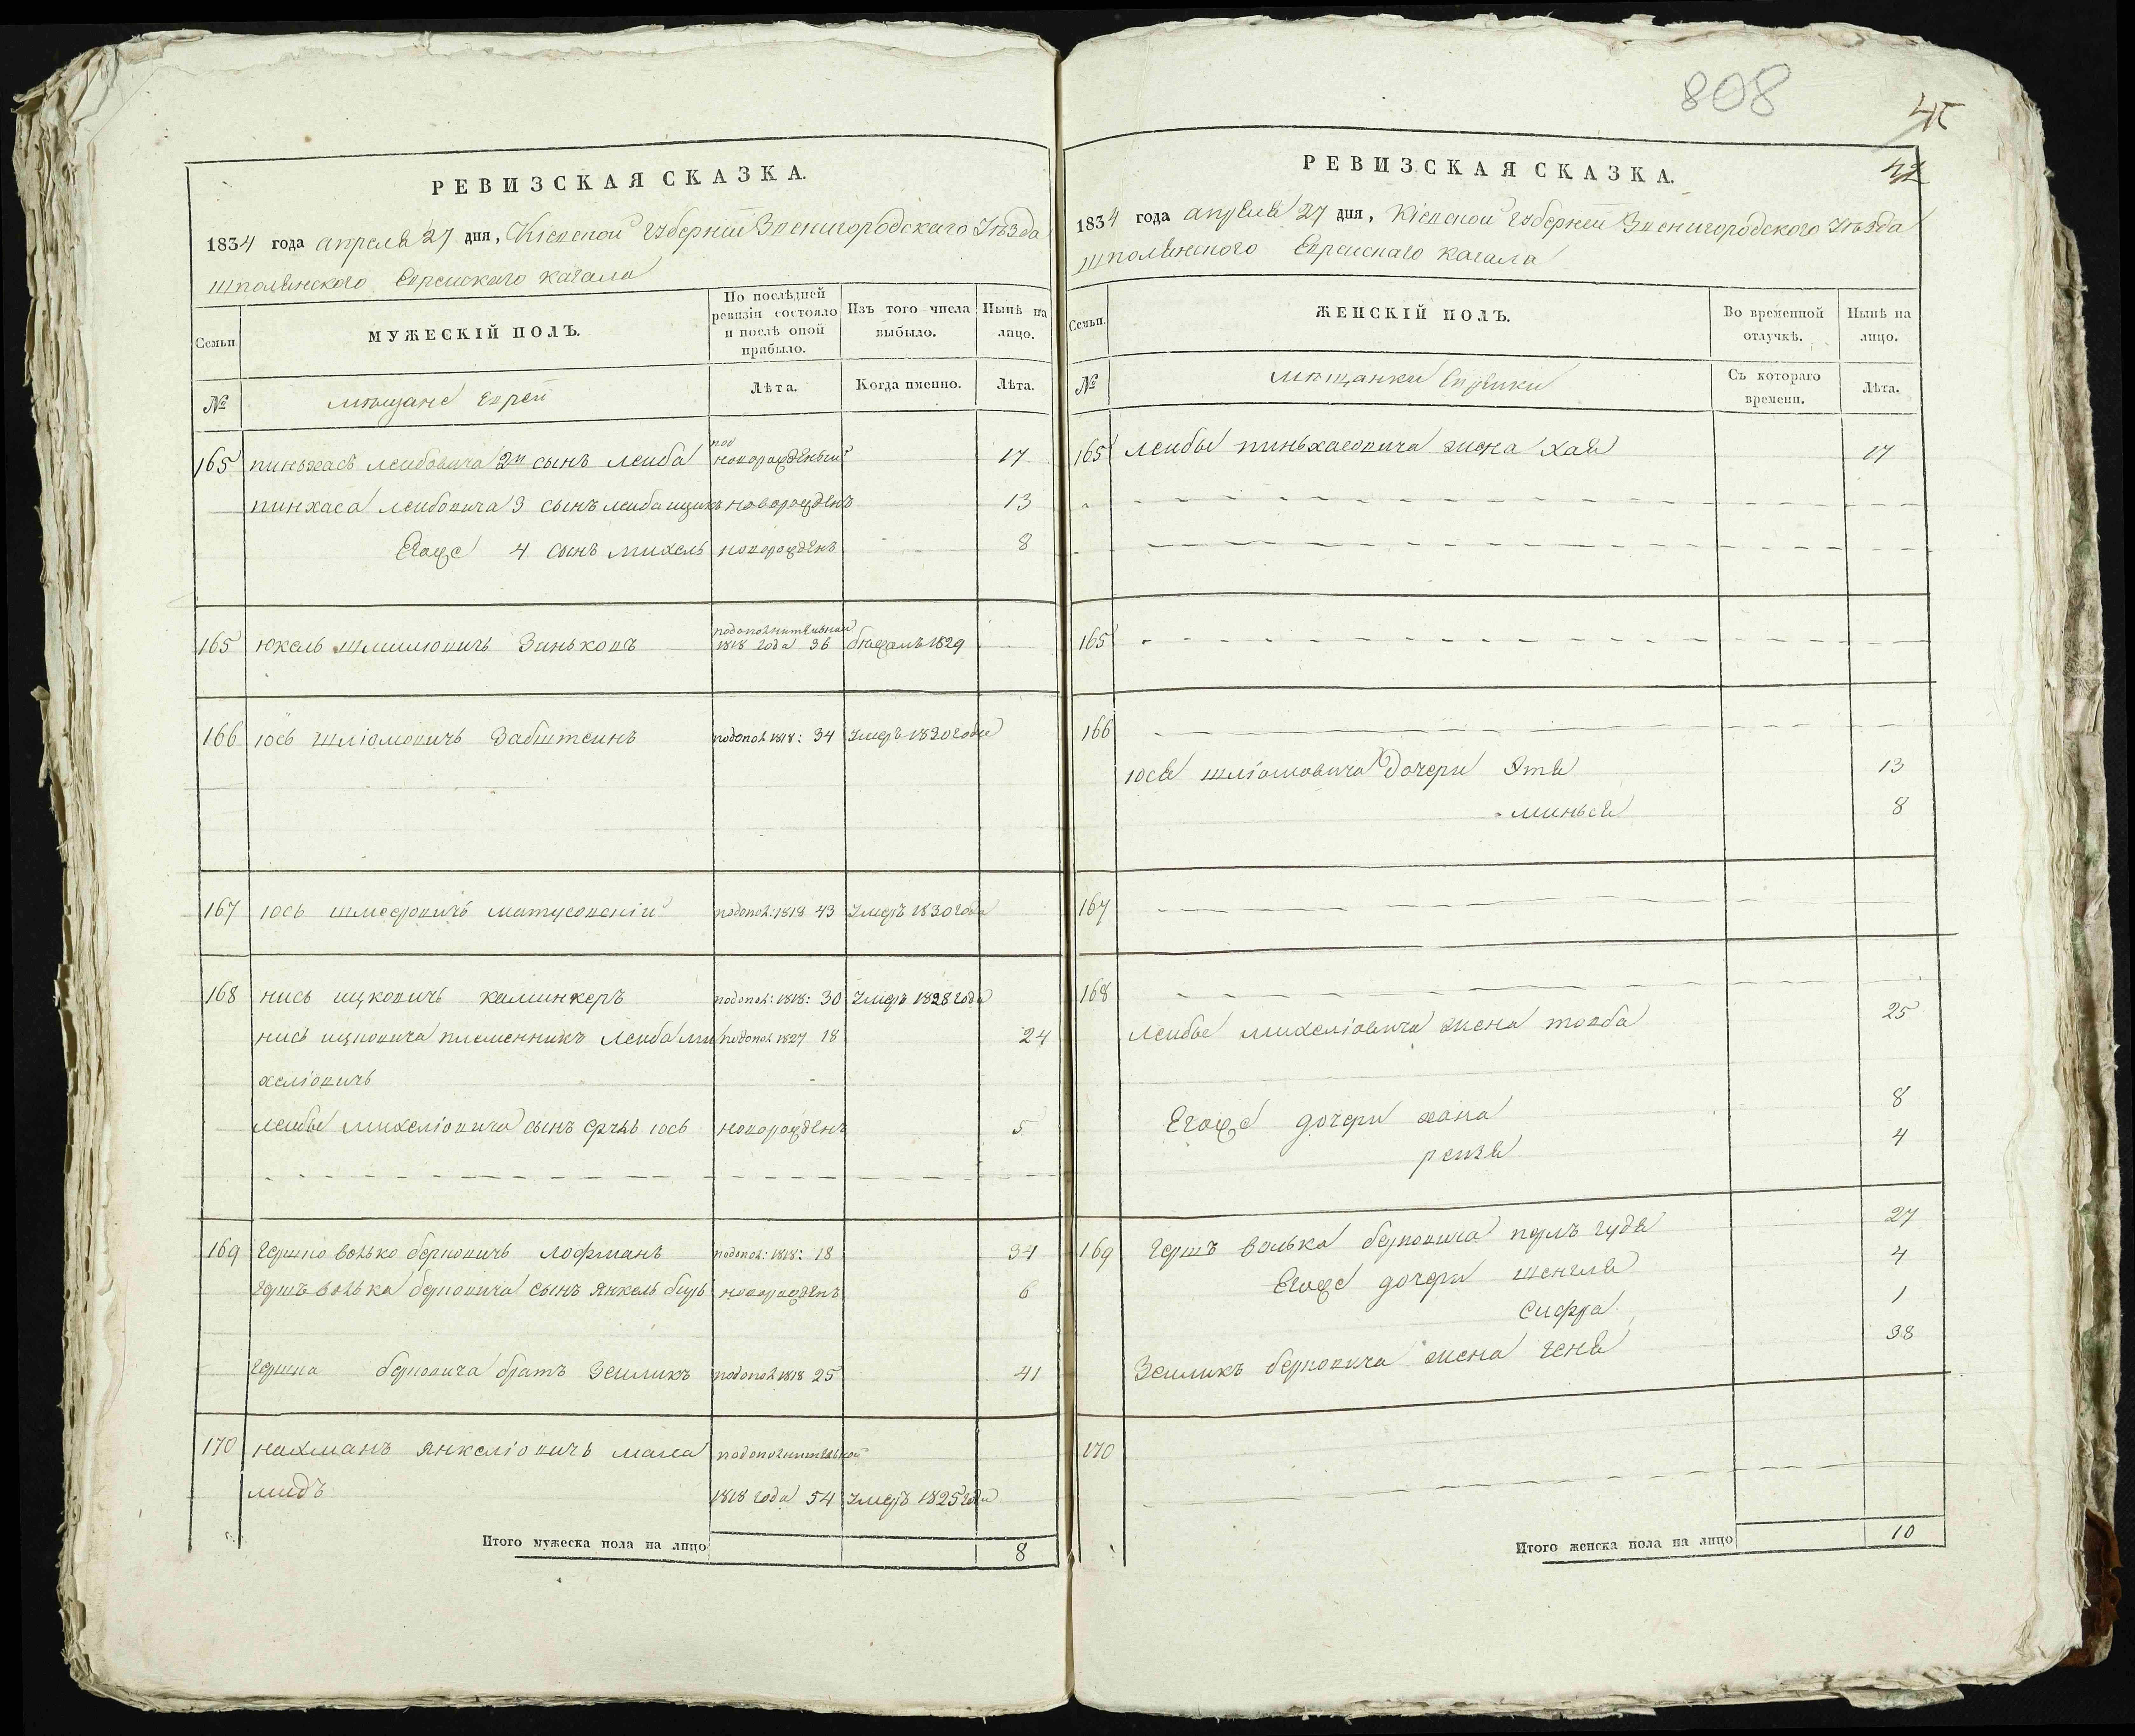 808
45
42
РЕВИЗСКАЯ СКАЗКА.
1834 года апреля 27 дня, Кіевской губерніи Звенигородскаго Уѣзда
шполянского Еврейскаго кагала
Семьи
МУЖЕСКІЙ ПОЛЪ.
По послѣдней ревизіи состояло и послѣ оной прибыло.
Изъ того числа выбыло.
Нынѣ на лицо.
№
мѣщане евреи
Лѣта.
Когда именно.
Лѣта.
165 пиньхасъ лейбовича 2й сынъ лейба новорожденый 17
пинхаса лейбовича 3 сынъ лейба ицикъ новорожденъ 13
Егоже 4 сынъ михель новорожденъ 8
165 юкель шлиоmовичъ Зиньковъ подополнительной 1818 года 36 бѣжалъ 1829
166 юсь шліомовичъ Вабштеинъ подопол 1818: 34 умеръ 1830 года
167 юсь шмеровичъ матусовскій подопол: 1818 43 умеръ 1830 года
168 нись ицковичъ каминкеръ подопол: 1818: 30 умеръ 1828 года
нись ицковича племенникъ лейба ми подопол 1827 18 24
хеліовичъ
лейбы михеліовича сынъ юсь новорожденъ 5
169 гершко волько берковичъ лофманъ подопол: 1818: 18 34
гершъ волька берковича сынъ янкель новорожденъ 6
гершка берковича братъ Зеиликъ подопол 1818 25 41
170 нахманъ янкеліовичъ мала подополнительной
мидъ 1818 года 54 умеръ 1825 года
Итого мужеска пола на лицо 8
РЕВИЗСКАЯ СКАЗКА.
1834 года апреля 27 дня, Кіевской губерніи Звенигородского Уѣзда
шполянского Еврейскаго кагала
Семьи.
ЖЕНСКІЙ ПОЛЪ.
Во временной отлучкѣ.
Нынѣ на лицо.
№
мѣщанки Еврейки
Съ котораго времени.
Лѣта.
165 лейбы пиньхасовича жена хая 17
165
166
юся шліомовича дочери Этя 13
минься 8
167
168
лейбы михеліовича жена товба 25
Егоже дочери хана 8
реизя 4
169 гершъ волька берковича гудя 27
Егоже дочери шенгля 4
сифра 1
Зеиликъ берковича жена геня 38
170
Итого женска пола на лицо 10